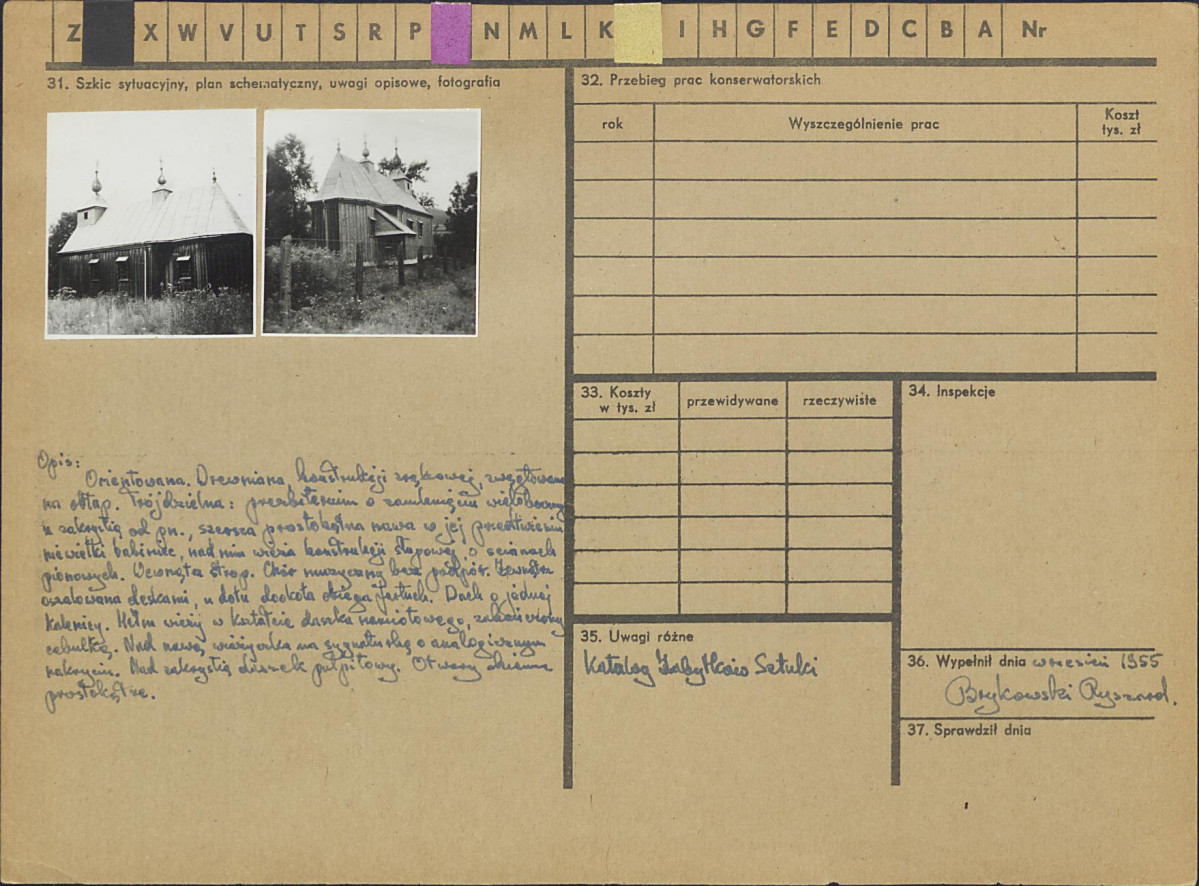 Z X W V U T S R P N M L K I H G F E D C B A Nr
31. Szkic sytuacyjny, plan schematyczny, uwagi opisowe, fotografia
Opis:
Orientowana. Drewniana, konstrukcji zrębowej, węgłowana
na obłap. Trójdzielna: prezbiterium o zamknięciu wielobocznym
z zakrystią od pn., szersza prostokątna nawa w jej przedłużeniu
niewielki babiniec, nad nim wieża konstrukcji słupowej o ścianach
pionowych. Wewnątrz strop. Chór muzyczny bez podpór. Zewnątrz
oszalowana deskami, u dołu dookoła obiega fartuch. Dach o jednej
kalenicy. Hełm wieży w kształcie daszka namiotowego, zakończony
cebulką. Nad nawą wieżyczka na sygnaturkę o analogicznym
nakryciu. Nad zakrystią daszek pulpitowy. Otwory okienne
prostokątne.
32. Przebieg prac konserwatorskich
rok Wyszczególnienie prac Koszt
tys. zł
33. Koszty
w tys. zł przewidywane rzeczywiste
34. Inspekcje
35. Uwagi różne
Katalog Zabytków Sztuki
36. Wypełnił dnia wrzesień 1955
Brykowski Ryszard.
37. Sprawdził dnia